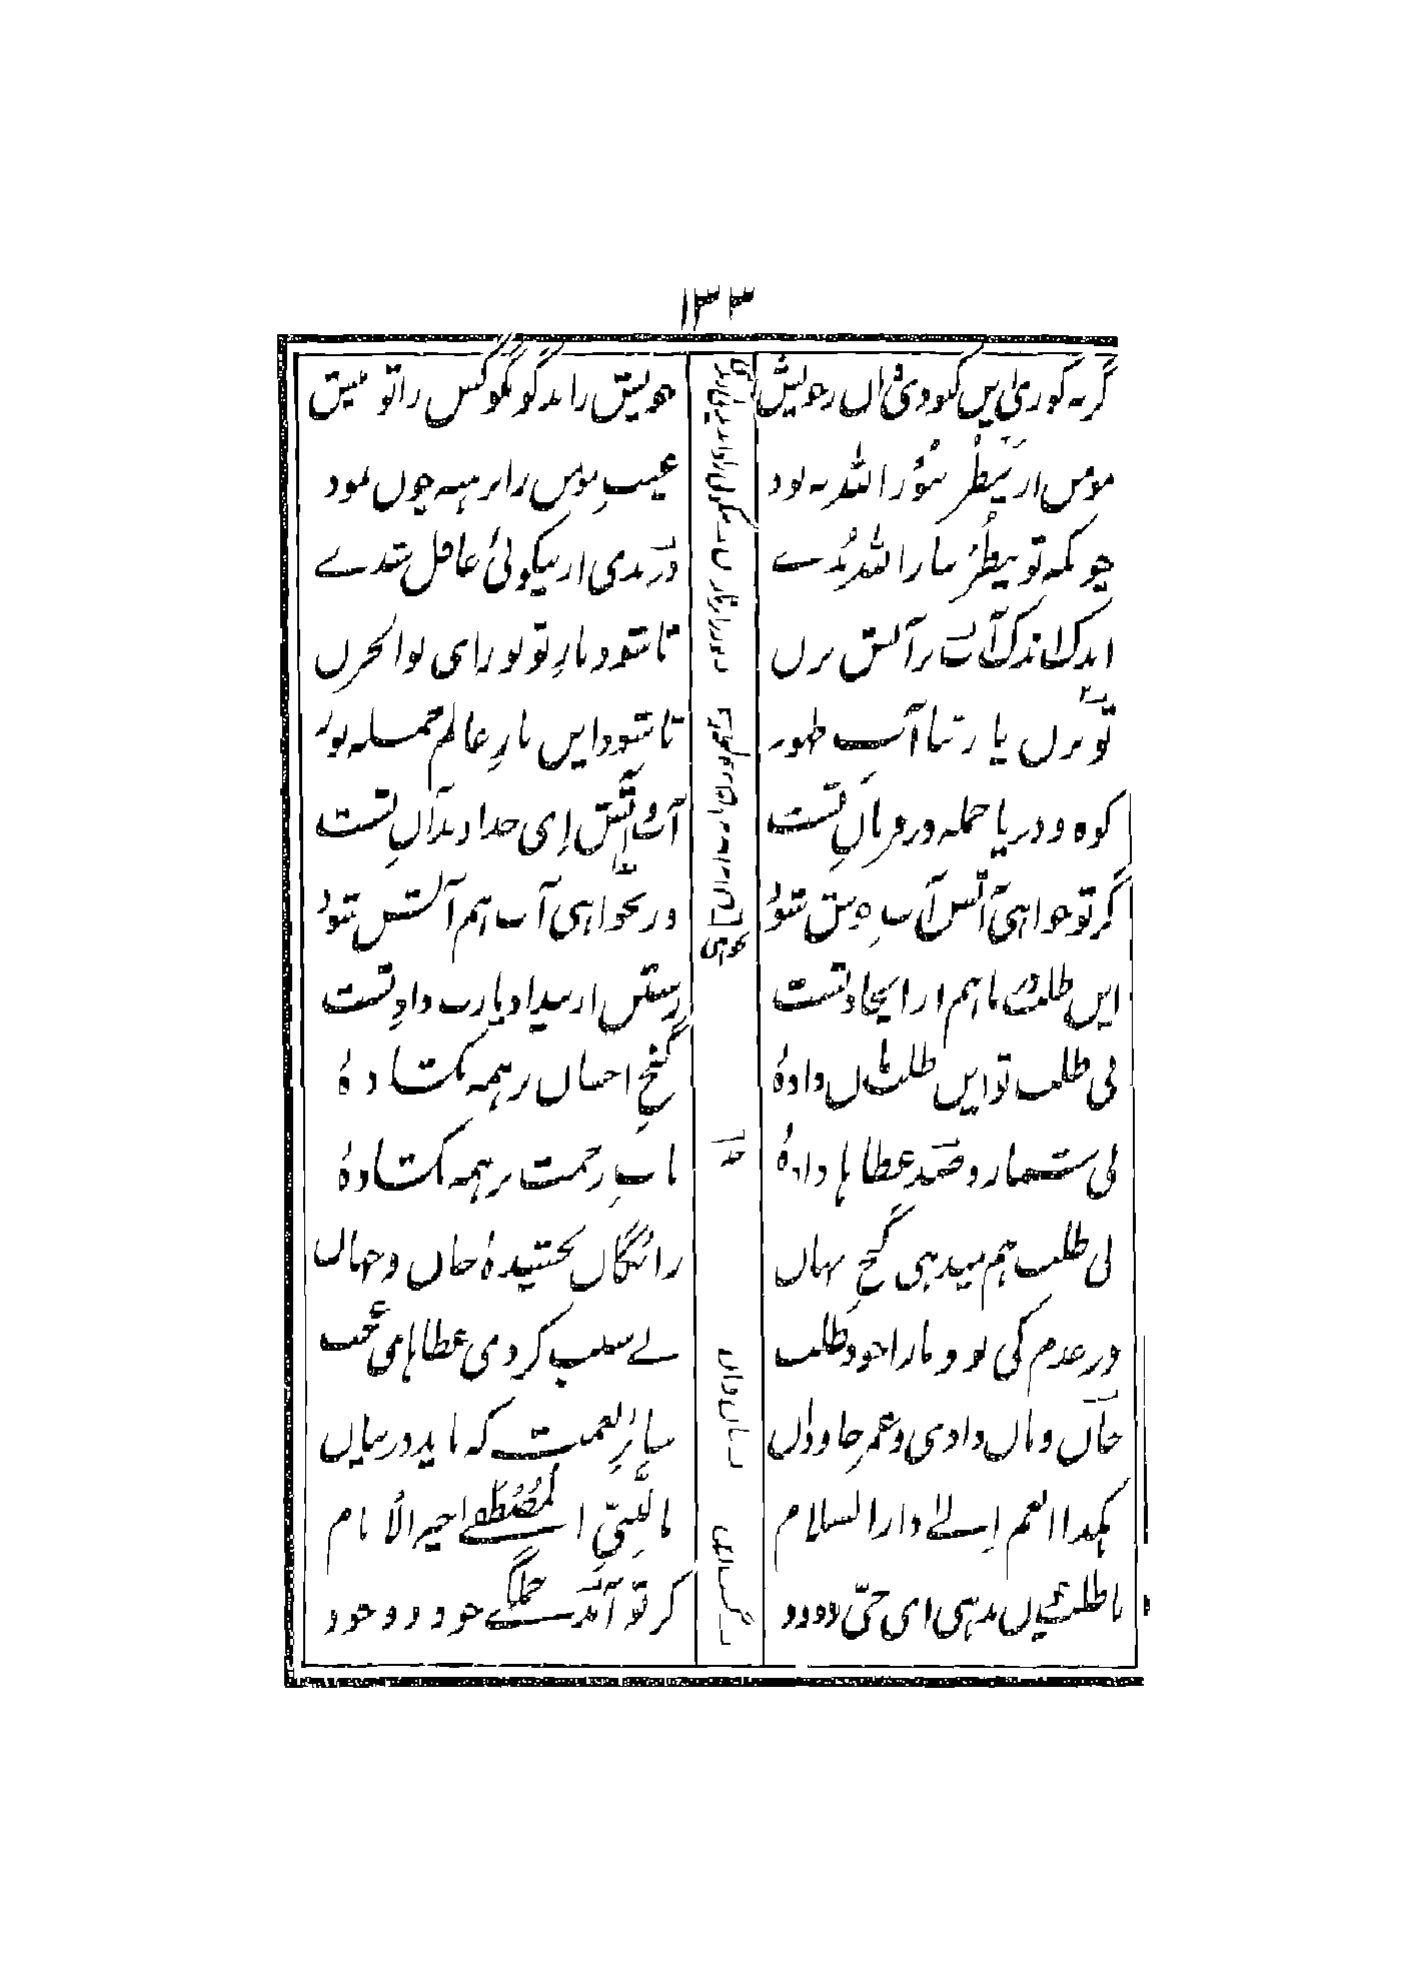 ۱۳۳
گر نه کوری این کبودی دان ز خویش خویش را بد گو مگو کس را تو بیش
مومن ار ینظر بنور الله نه بود عیب مومن را برهنه چون نمود
چونکه تو ینظر بنار الله بدے در بدی از نیکوئی غافل شدے
اندک اندک آب بر آتش بزن تا شود نار تو نور ای بوالحزن
تو بزن یا ربنا آب طهور تا شود این نار عالم جمله نور
کوه و دریا جمله در فرمان تست آب و آتش ای خداوند آن تست
گر تو خواهی آتش آب خوش شود ور نخواهی آب هم آتش شود
این طلب در ما هم از ایجاد تست رستن از بیداد یا رب داد تست
بی طلب تو این طلب مان دادهٔ گنج احسان بر همه بکشادهٔ
بی شمار و حد عطاها دادهٔ باب رحمت بر همه بکشادهٔ
بی طلب هم میدهی گنج نهان رائگان بخشیدهٔ جان و جهان
در عدم کی بود ما را خود طلب بے سبب کردی عطاهای عجب
جان و نان دادی و عمر جاودان سائر نعمت که ناید در بیان
هکذا انعم اِلے دار السلام بالنبیّ المصطفے خیر الانام
با طلب چون ندهی ای حیّ ودود کز تو آمد جملگے جود و وجود